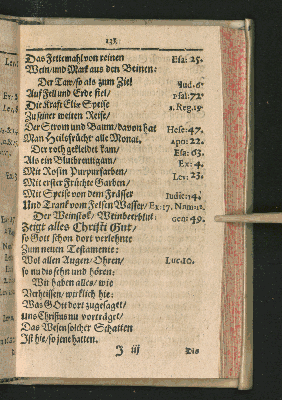 135.
Das Fettemahl von reinen Esa: 25.
Wein/und Mark aus den Beinen:
Der Taw/so als zum Ziel Jud. 6.
Auf Fell und Erde fiel/ psal: 72.
Die Kraft Eliæ Speise 1. Reg. 19.
Zu seiner weiten Reise/
Der Strom und Baum/davon hat Hese: 47.
Man Heilsfrücht alle Monat, apo: 22.
Der roth gekleidet kam/ Esa: 63.
Als ein Blutbreutgam/ Ex: 4.
Mit Rosin Purpurfarben/
Mit erster Früchte Garben/ Lev: 23.
Mit Speise von dem Frässer Judic: 14.
Und Trank vom Felsen Wasser/ Ex: 17. Num: 20.
Der Weinstok/ Weinbeerblut: gen: 49.
Zeigt alles Christi Gut/
so Gott schon dort verlehnte
Zum neuen Testamente:
Wol allen Augen/Ohren/ Luc: 10.
so nu dis sehn und hören:
Wir haben alles/wie
Verheissen/wirklich hie:
Was GOtt dort zugesaget/
uns Christus nu vorträget/
Das Wesen solcher Schatten
Ist hie/so jene hatten.
J iij Die